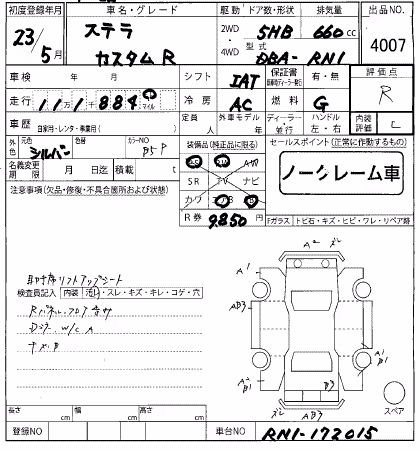 初度登録年月 車名・グレード 駆動 ドア数・形状 排気量 出品NO.
23年5月 ステラ カスタムR 2WD 4WD 5HB 660cc 4007
型式 DBA-RN1
車検 年 月 シフト IAT 保証書 有・無 評価点 R
走行 11万1千884 マイル 冷房 AC 燃料 G
車歴 自家用・レンタ・事業用( ) 定員 人 外車モデル 年 ディーラー・並行 ハンドル 左・右 内装評価 C
外色 元色 シルバー 色替 カラーNO 装備品(純正品に限る) セールスポイント(正常に作動するもの)
名義変更期限 月 日迄 積載 t SR TV ナビ ノークレーム車
注意事項(欠品・修復・不具合箇所および状態) カワ
R券 9850 Fガラス トビ石・キズ・ヒビ・ワレ・リペア跡
助手席リフトアップシート
検査員記入 内装 汚レ・スレ・キズ・キレ・コゲ・穴
A2
A1
AU3
A1
B1
A2
B1
B3
AU3
スペア
長さ cm 幅 cm 高さ cm
登録NO 車台NO RN1-172015